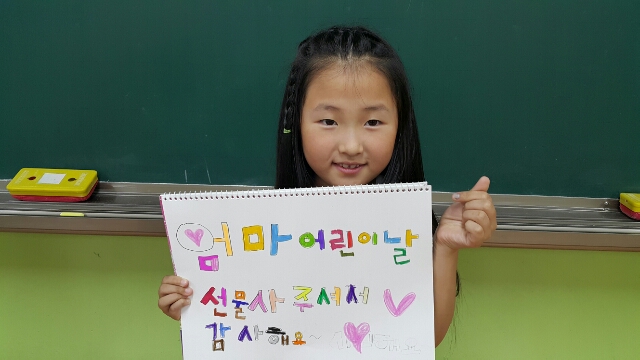 엄마 어린이날
선물사 주셔서
감사해요~